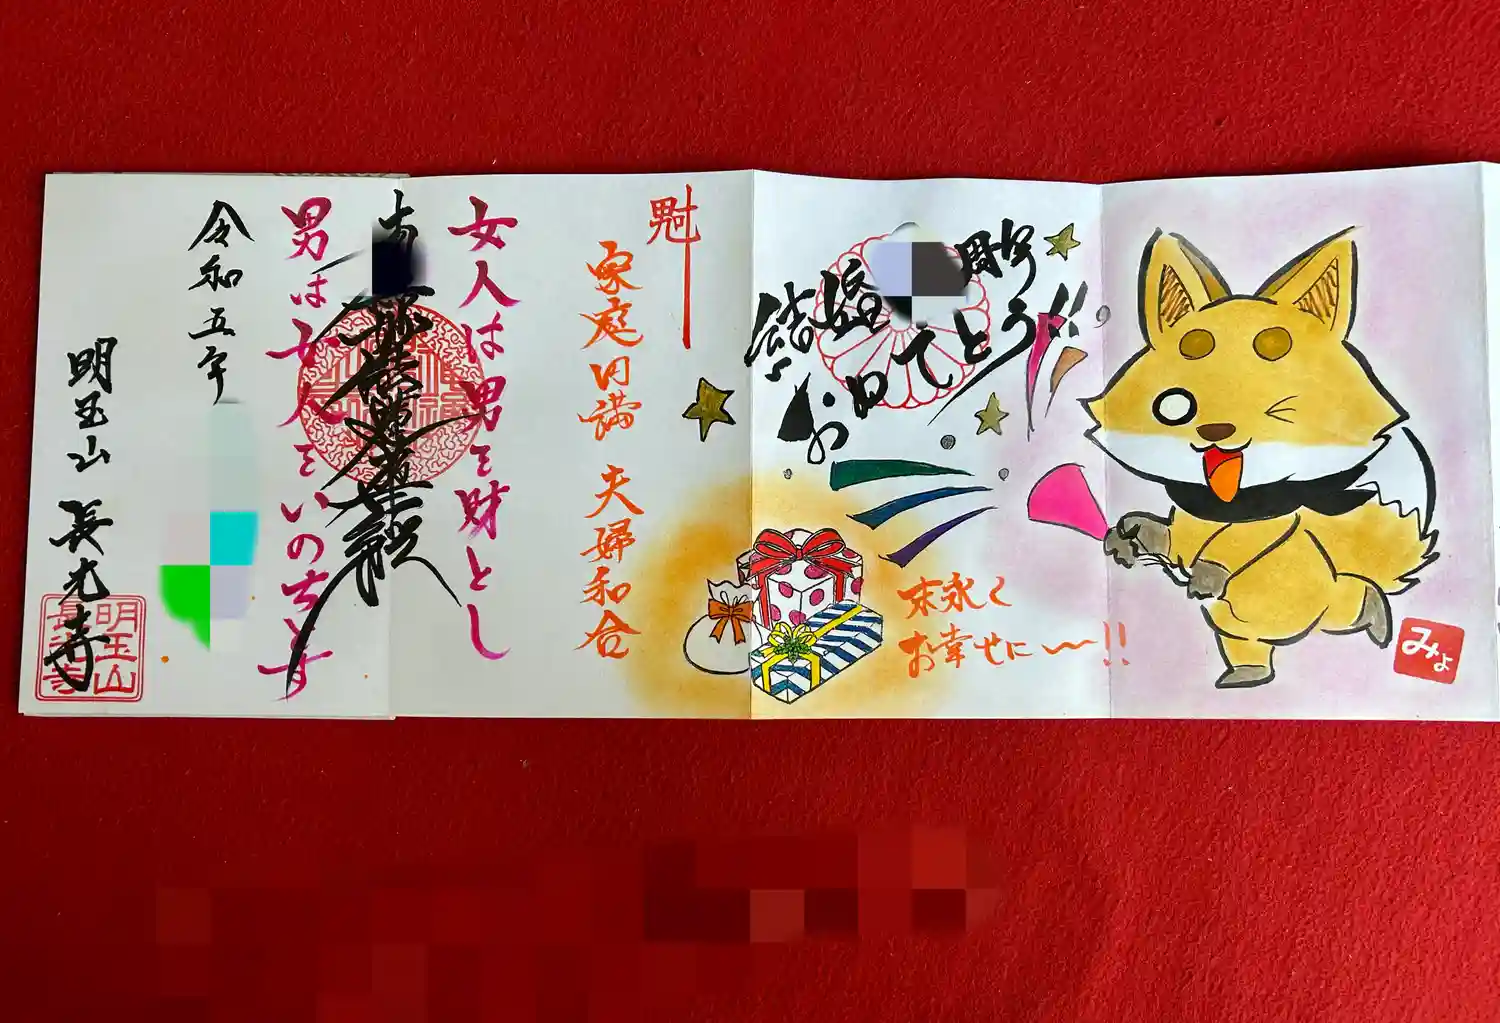 結婚
周年
おめでとう!!
末永く
お幸せに〜!!
みょ
家庭円満 夫婦和合
女人は男を財とし
妙法蓮華経
男は女人をいのちとす
令和五年
明王山 長光寺
明王山
長光寺